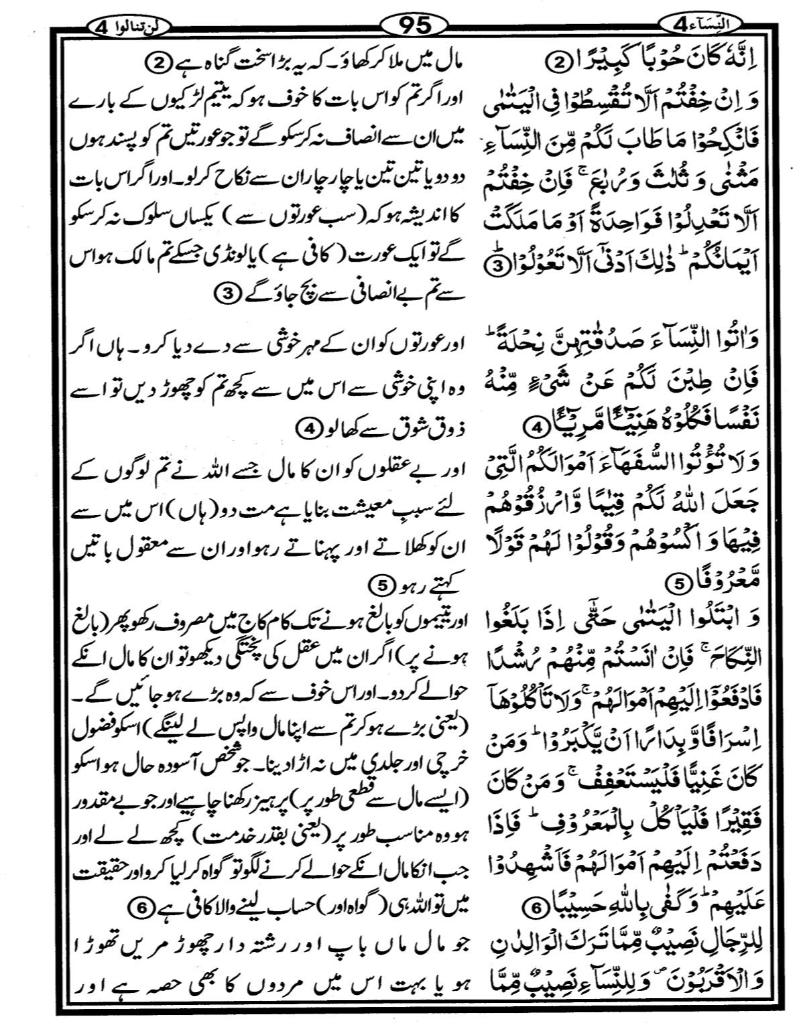 النِّسَآء 4
95
لن تنالوا 4
اِنَّهٗ كَانَ حُوْبًا كَبِيْرًا ②
وَ اِنْ خِفْتُمْ اَلَّا تُقْسِطُوْا فِي الْيَتٰمٰى
فَانْكِحُوْا مَا طَابَ لَكُمْ مِّنَ النِّسَآءِ
مَثْنٰى وَ ثُلٰثَ وَ رُبٰعَ ۚ فَاِنْ خِفْتُمْ
اَلَّا تَعْدِلُوْا فَوَاحِدَةً اَوْ مَا مَلَكَتْ
اَيْمَانُكُمْ ؕ ذٰلِكَ اَدْنٰۤى اَلَّا تَعُوْلُوْا ؕ ③
وَ اٰتُوا النِّسَآءَ صَدُقٰتِهِنَّ نِحْلَةً ؕ
فَاِنْ طِبْنَ لَكُمْ عَنْ شَيْءٍ مِّنْهُ
نَفْسًا فَكُلُوْهُ هَنِيْٓـًٔا مَّرِيْٓـًٔا ④
وَ لَا تُؤْتُوا السُّفَهَآءَ اَمْوَالَكُمُ الَّتِيْ
جَعَلَ اللّٰهُ لَكُمْ قِيٰمًا وَّ ارْزُقُوْهُمْ
فِيْهَا وَ اكْسُوْهُمْ وَ قُوْلُوْا لَهُمْ قَوْلًا
مَّعْرُوْفًا ⑤
وَ ابْتَلُوا الْيَتٰمٰى حَتّٰۤى اِذَا بَلَغُوا
النِّكَاحَ ۚ فَاِنْ اٰنَسْتُمْ مِّنْهُمْ رُشْدًا
فَادْفَعُوْۤا اِلَيْهِمْ اَمْوَالَهُمْ ۚ وَ لَا تَاْكُلُوْهَاۤ
اِسْرَافًا وَّ بِدَارًا اَنْ يَّكْبَرُوْا ؕ وَ مَنْ
كَانَ غَنِيًّا فَلْيَسْتَعْفِفْ ۚ وَ مَنْ كَانَ
فَقِيْرًا فَلْيَاْكُلْ بِالْمَعْرُوْفِ ؕ فَاِذَا
دَفَعْتُمْ اِلَيْهِمْ اَمْوَالَهُمْ فَاَشْهِدُوْا
عَلَيْهِمْ ؕ وَ كَفٰى بِاللّٰهِ حَسِيْبًا ⑥
لِلرِّجَالِ نَصِيْبٌ مِّمَّا تَرَكَ الْوَالِدٰنِ
وَ الْاَقْرَبُوْنَ ۪ وَ لِلنِّسَآءِ نَصِيْبٌ مِّمَّا
مال میں ملا کر کھاؤ۔ کہ یہ بڑا سخت گناہ ہے ②
اور اگر تم کو اس بات کا خوف ہو کہ یتیم لڑکیوں کے بارے
میں ان سے انصاف نہ کر سکو گے تو جو عورتیں تم کو پسند ہوں
دو دو یا تین تین یا چار چار ان سے نکاح کر لو۔ اور اگر اس بات
کا اندیشہ ہو کہ (سب عورتوں سے) یکساں سلوک نہ کر سکو
گے تو ایک عورت (کافی ہے) یا لونڈی جسکے تم مالک ہو اس
سے تم بے انصافی سے بچ جاؤ گے ③
اور عورتوں کو ان کے مہر خوشی سے دے دیا کرو۔ ہاں اگر
وہ اپنی خوشی سے اس میں سے کچھ تم کو چھوڑ دیں تو اسے
ذوق شوق سے کھا لو ④
اور بے عقلوں کو ان کا مال جسے اللہ نے تم لوگوں کے
لئے سبب معیشت بنایا ہے مت دو (ہاں) اس میں سے
ان کو کھلاتے اور پہناتے رہو اور ان سے معقول باتیں
کہتے رہو ⑤
اور یتیموں کو بالغ ہونے تک کام کاج میں مصروف رکھو پھر (بالغ
ہونے پر) اگر ان میں عقل کی پختگی دیکھو تو ان کا مال انکے
حوالے کر دو۔ اور اس خوف سے کہ وہ بڑے ہو جائیں گے۔
(یعنی بڑے ہو کر تم سے اپنا مال واپس لے لینگے) اسکو فضول
خرچی اور جلدی میں نہ اڑا دینا۔ جو شخص آسودہ حال ہو اسکو
(ایسے مال سے قطعی طور پر) پرہیز رکھنا چاہیے اور جو بے مقدور
ہو وہ مناسب طور پر (یعنی بقدر خدمت) کچھ لے لے اور
جب انکا مال انکے حوالے کرنے لگو تو گواہ کر لیا کرو اور حقیقت
میں تو اللہ ہی (گواہ اور) حساب لینے والا کافی ہے ⑥
جو مال ماں باپ اور رشتہ دار چھوڑ مریں تھوڑا
ہو یا بہت اس میں مردوں کا بھی حصہ ہے اور